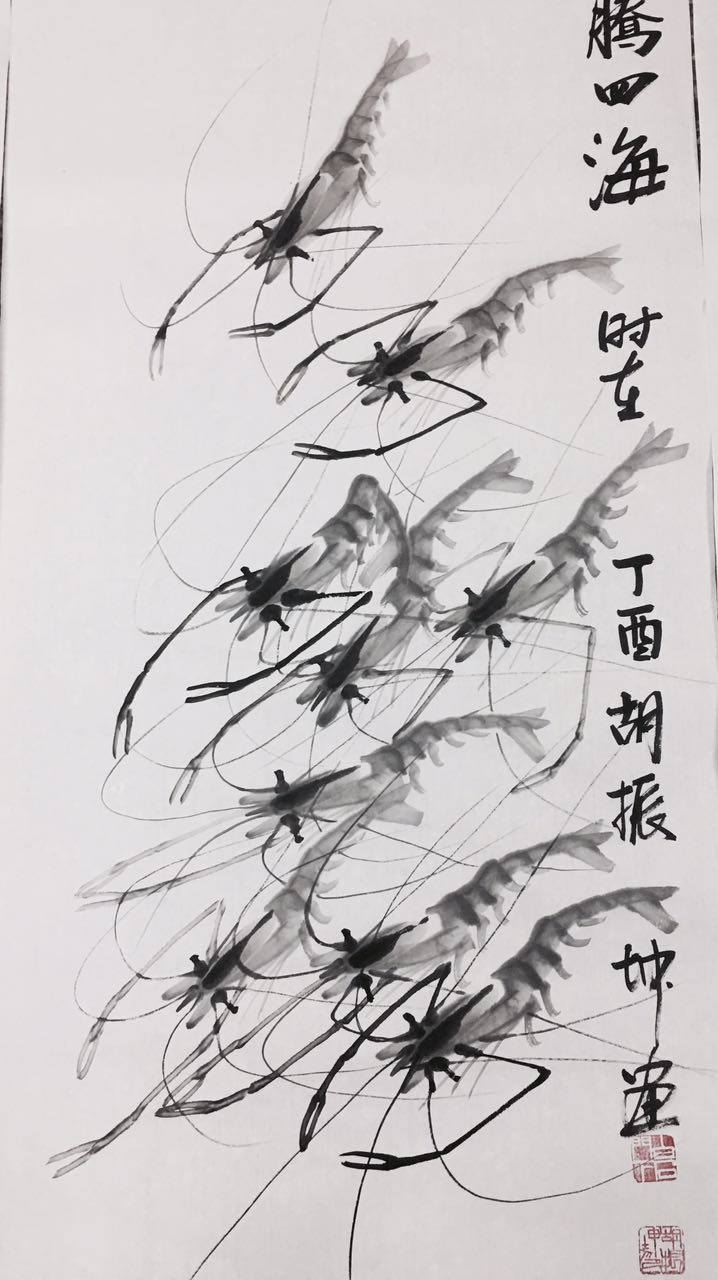 腾四海
时在
丁酉胡振坤画